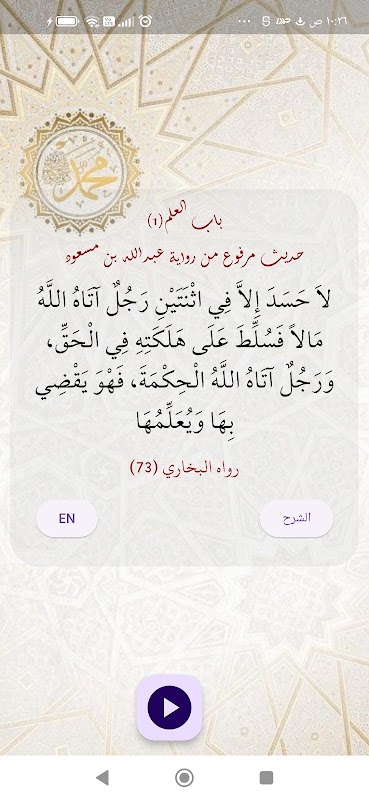 ١٠:٢٦ ص
محمد
باب العلم(1)
حديث مرفوع من رواية عبدالله بن مسعود
لاَ حَسَدَ إِلاَّ فِي اثْنَتَيْنِ رَجُلٌ آتَاهُ اللَّهُ
مَالاً فَسُلِّطَ عَلَى هَلَكَتِهِ فِي الْحَقِّ،
وَرَجُلٌ آتَاهُ اللَّهُ الْحِكْمَةَ، فَهْوَ يَقْضِي
بِهَا وَيُعَلِّمُهَا
رواه البخاري (73)
الشرح
EN